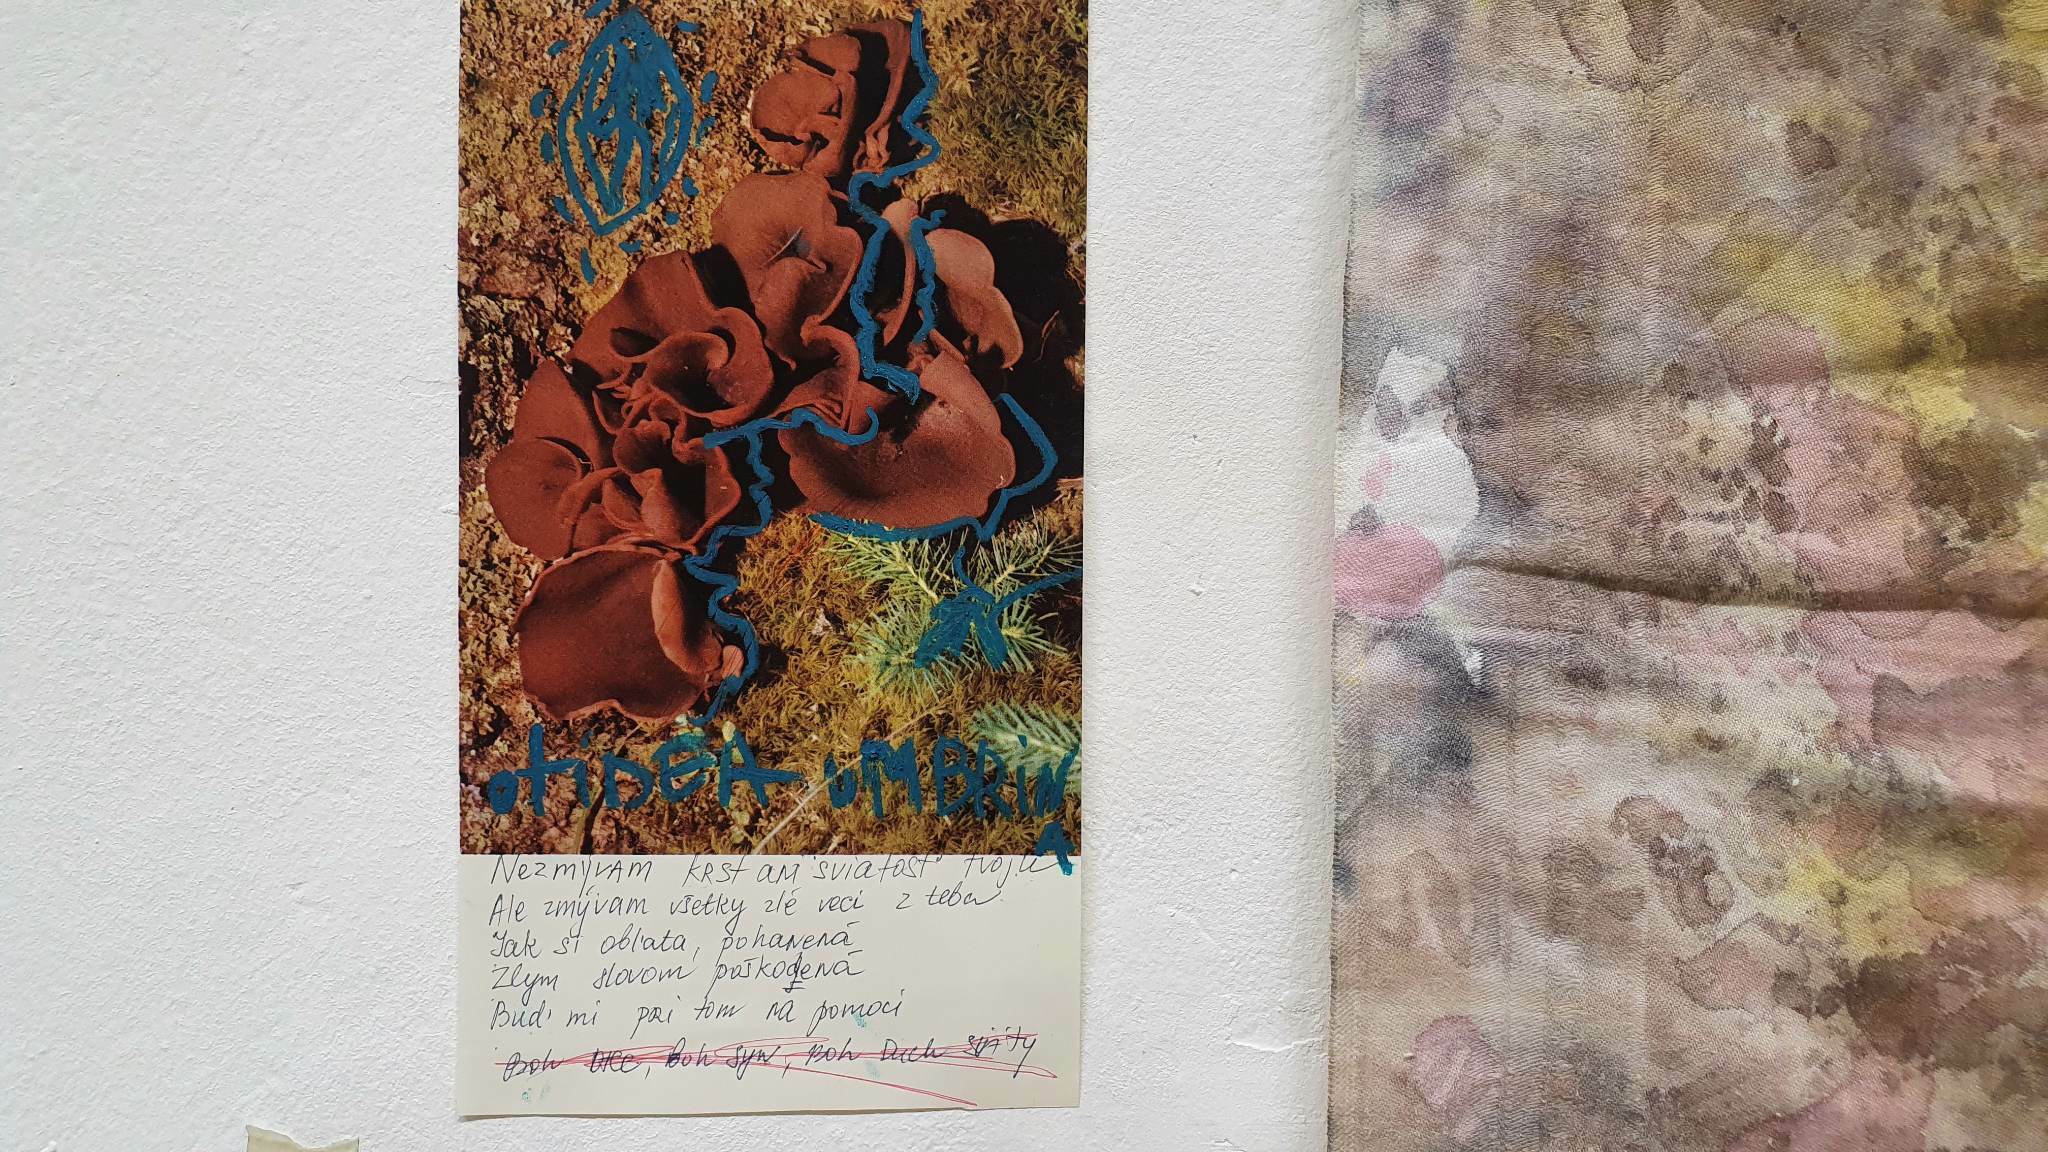 otiDEA UMBRiNA
Nezmývam krstani sviatosť tvoju
Ale zmývam všetky zlé veci z teba
Jak si obľata, pohanená
Zlým slovom poškodená
Buď mi pri tom na pomoci
Boh Otec, Boh Syn, Boh Duch Svätý